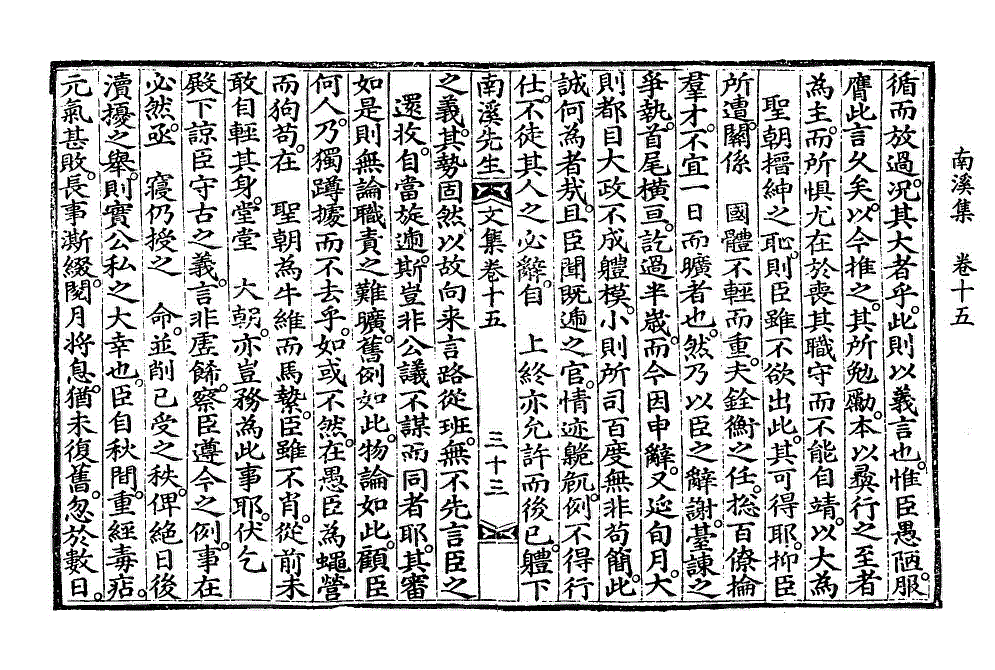 南溪集　卷十五
循而放過。况其大者乎。此則以義言也。惟臣愚陋服
膺此言久矣。以今推之。其所勉勵。本以彛行之至者
為主。而所惧尤在於喪其職守而不能自靖。以大為
聖朝搢紳之耻。則臣雖不欲出此。其可得耶。抑臣
所遭。關係　國體不輕而重。夫銓衡之任。揔百僚掄
羣才。不宜一日而曠者也。然乃以臣之辭謝。臺諫之
爭執。首尾橫亘。訖過半歲。而今因申辭。又延旬月。大
則都目大政不成軆模。小則所司百度無非苟簡。此
誠何為者哉。且臣聞旣遞之官。情迹臲卼。例不得行
仕。不徒其人之必辭。自　上終亦允許而後已。軆下
南溪先生文集卷十五　三十三
之義。其勢固然。以故向来言路從班。無不先言臣之
還收。自當旋遞。斯豈非公議不謀而同者耶。其審
如是則無論職責之難曠。舊例如此。物論如此。顧臣
何人。乃獨蹲據而不去乎。如或不然。在愚臣為蠅營
而狗苟。在　聖朝為牛維而馬縶。臣雖不肖。從前未
敢自輕其身。堂堂　大朝。亦豈務為此事耶。伏乞
殿下諒臣守古之義。言非虛餙。察臣遵今之例。事在
必然。亟　寢仍授之　命。並削已受之秩。俾絶日後
瀆擾之舉。則實公私之大幸也。臣自秋間。重經毒痁。
元氣甚敗。長事澌綴。閱月將息。猶未復舊。忽於數日。